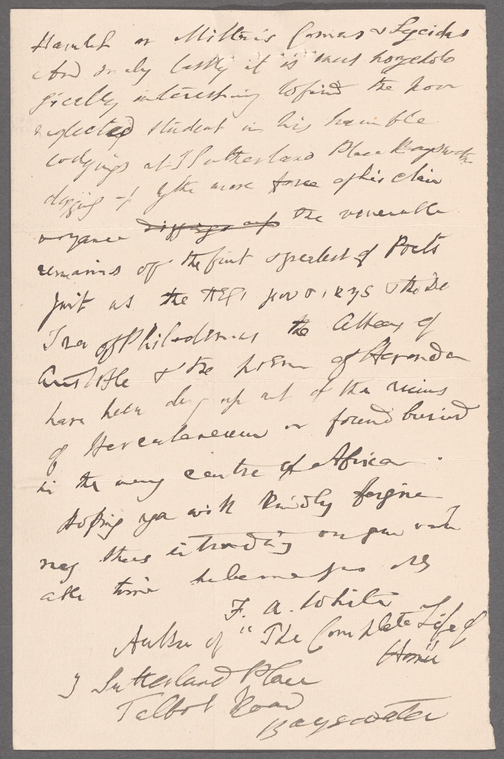 Hamlet or Milton's Comus & Lycidas
And surely lastly it is most
interesting to find the poor
neglected student in his humble
lodgings at 7 Sutherland Place Bayswater
digging up by the mere force of his clair
voyance digging up the venerable
remains of the first & greatest of Poets
just as the & the De
Ira of Philodemus the of
Aristotle & the poems of Herondas
have been dug up out of the ruins
of Herculaneum or found buried
in the very centre of Africa.
Hoping you will kindly forgive
my thus intruding on your valu
able time
F. A. White
Author of "The Complete Life of
Homer
7 Sutherland Place
Talbot Road
Bayswater